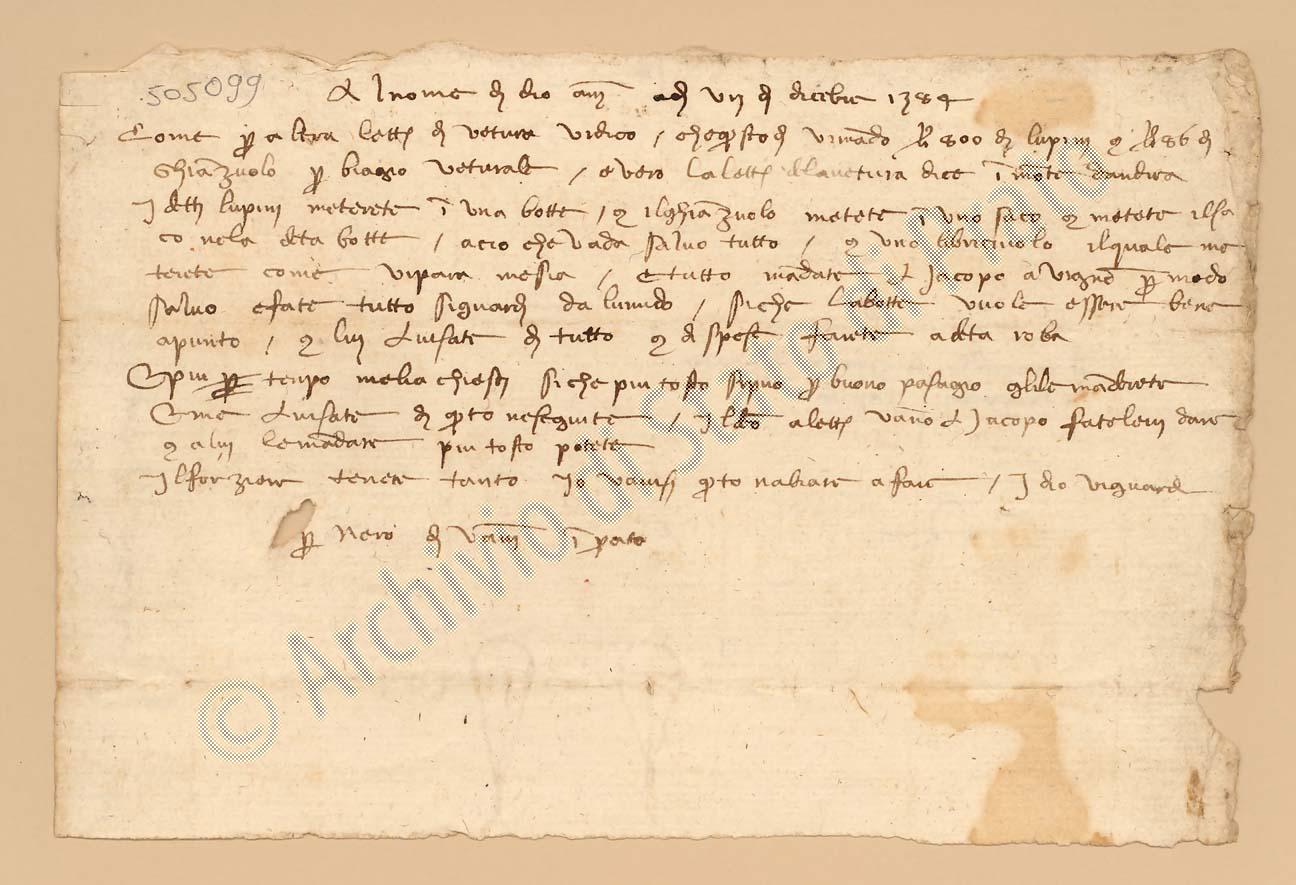 505099
Al nome di dio amē adì VII di dicēbre 1384
Come p altra lettˀ di vetura vi dico / che qsto dì vi mādo lb 800 di lupini e lb 86 di
Ghiāzuolo p biagio veturale / e vero la lettˀ dela vetura dice ī mōte dandrea
I detti lupini meterete ī una botte / e il ghiāzuolo metete ī uno saco e metete il sa
co nela deta botte / acio che vada salvo tutto / e uno libriciuolo il quale me
terete come vi para mesia / e tutto mādate a Jacopo a vignōe p modo
salvo e fate tutto si guardi da lumido / si che la botte vuole essere bene
apunto / e lui avisate di tutto e di spese farete a deta roba
E piu p tenpo me lia chiesti si che piu tosto si puo p buono pasagio glile māderete
E me avisate di qto ne seguite / I lēo a lettˀ vāno a Jacopo fatelevi dare
e a lui le mādate piu tosto potete
Il forziere tenete tanto io vavisi qto nabiate a fare / I dio vi guardi
p Nero di Vāni ī prato
© Archivio di Stato di Prato